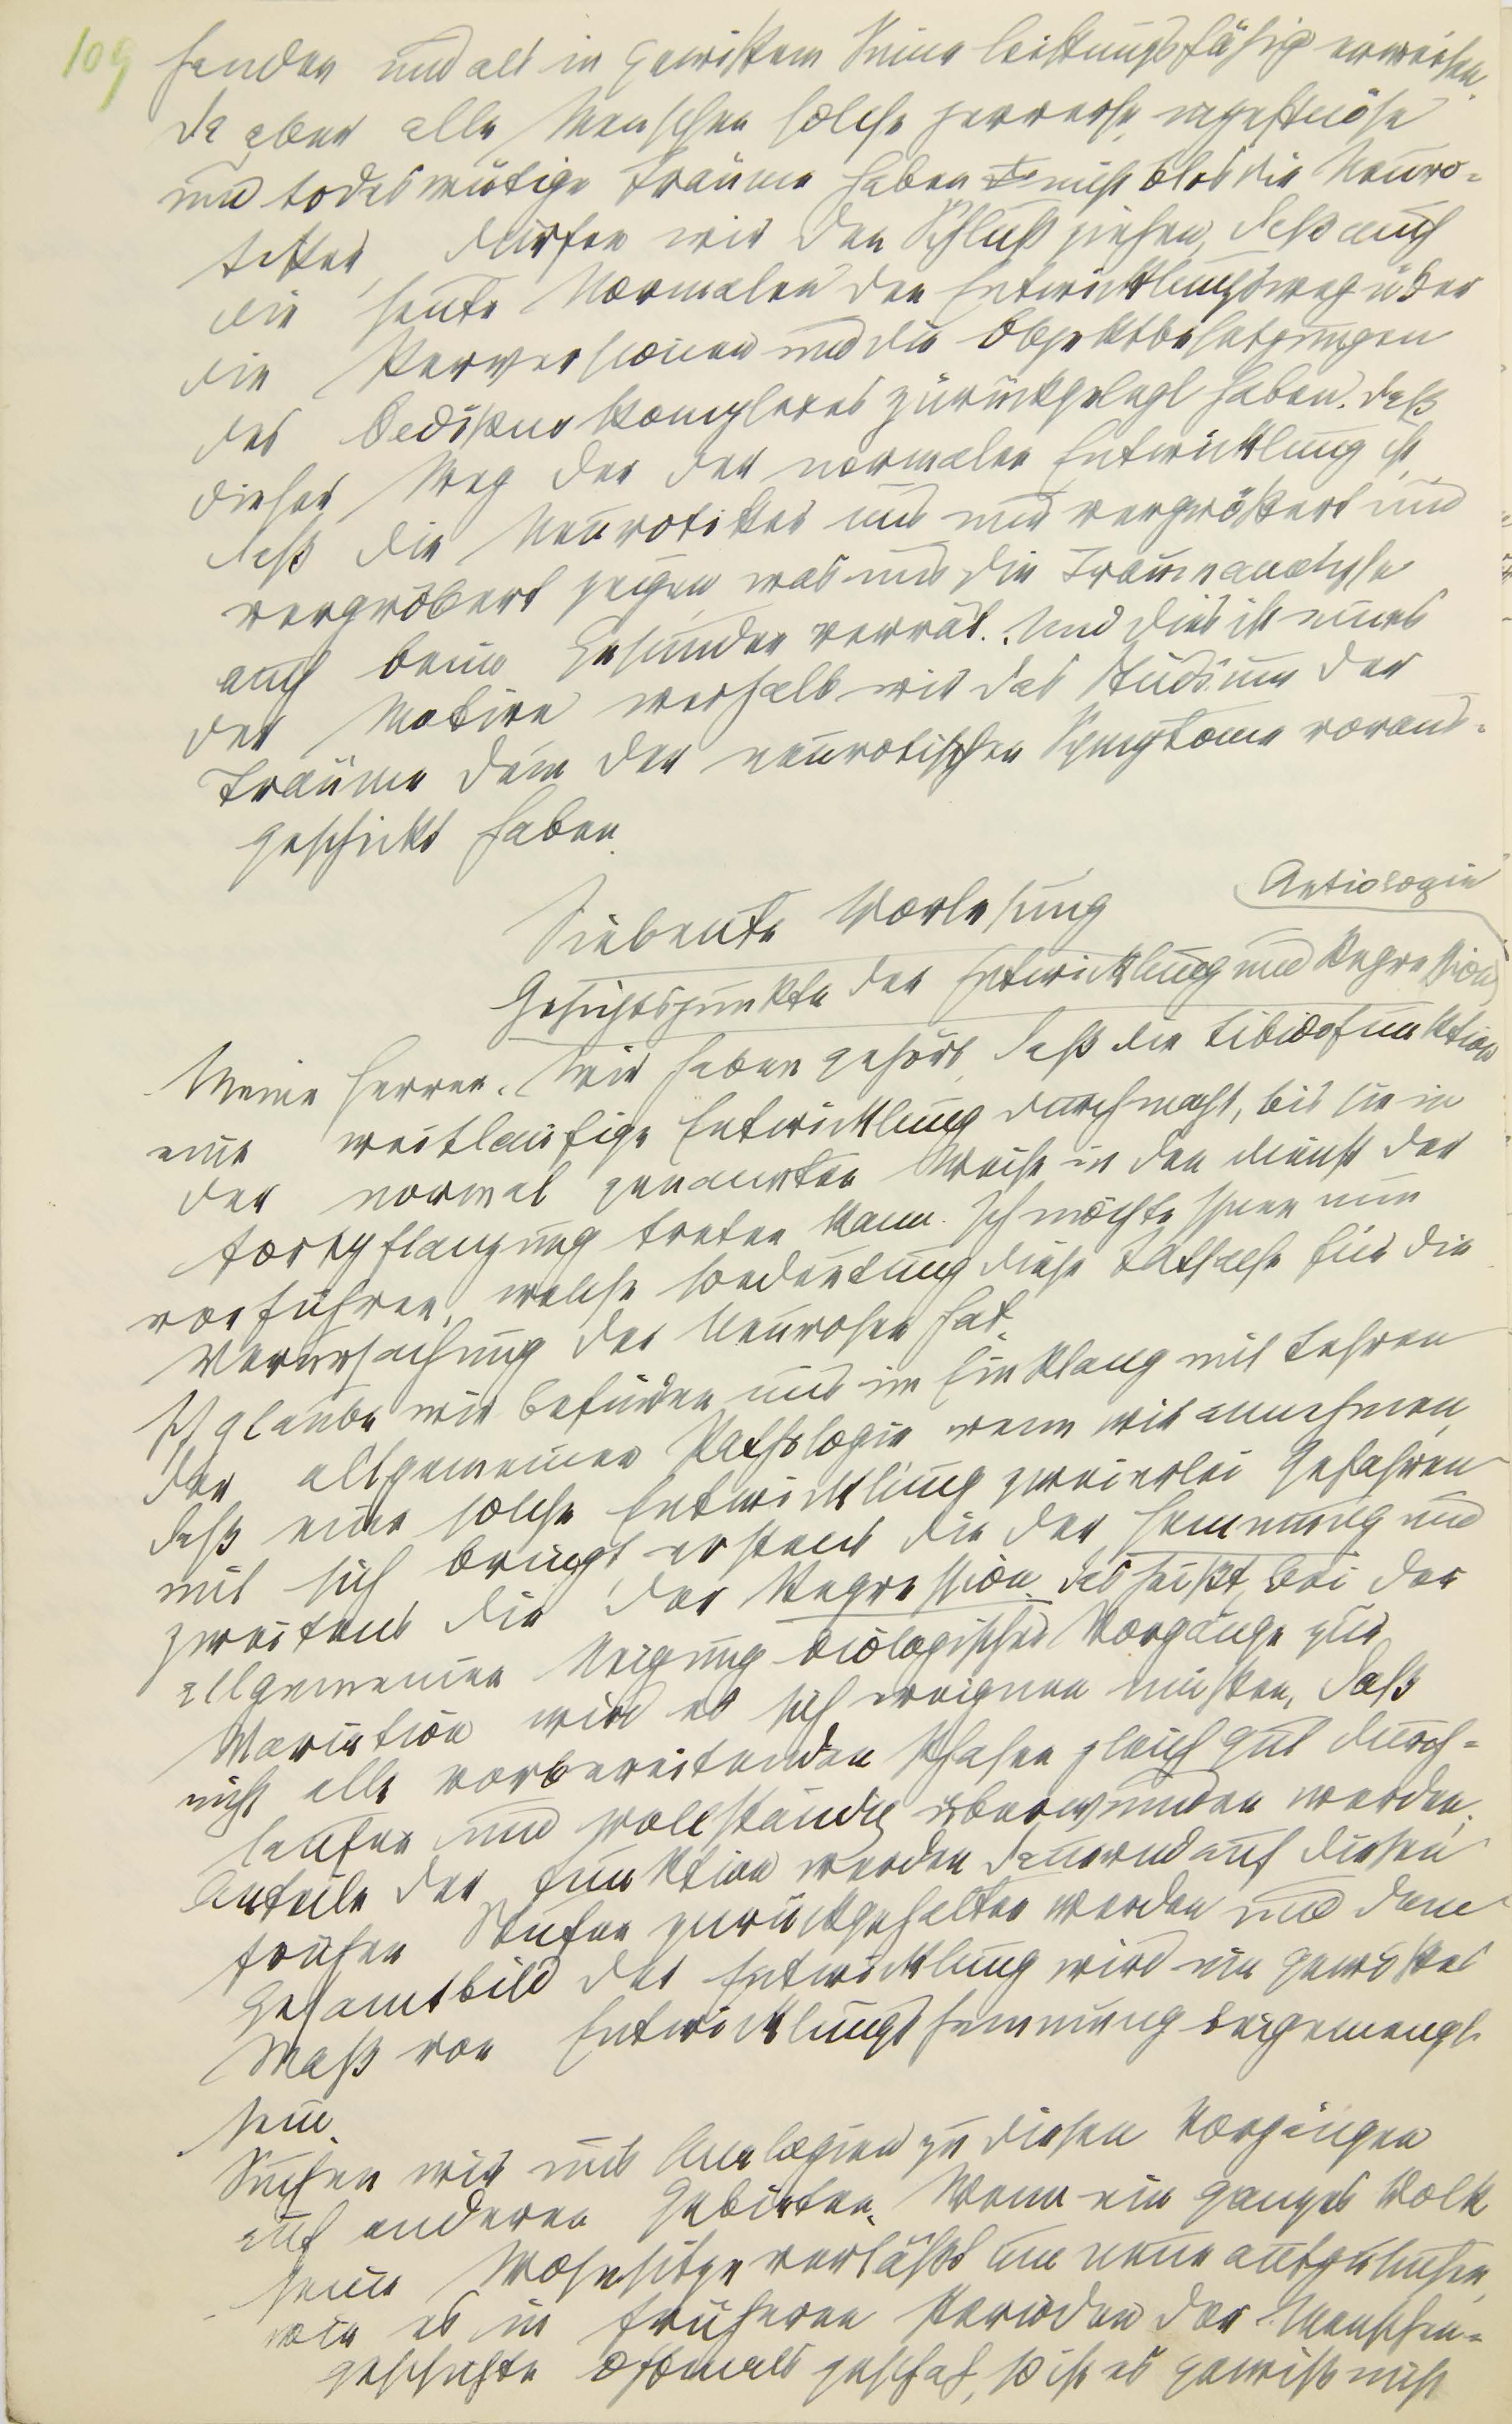 109
handen und als in gewissem Sinne leistungsfähig erweisen.
Da aber alle Menschen solche perverse, inzestuöse
und todeswütige Träume haben nicht blos die Neuro-
tiker, dürfen wir den Schluß ziehen, daß auch
die heute Normalen den Entwicklungsweg über
die Perversionen und die Objektbesetzungen
des Oedipuskomplexes zurückgelegt haben, daß
dieser Weg der der normalen Entwicklung ist,
daß die Neurotiker uns nur vergrößert und
vergröbert zeigen was uns die Traumanalyse
auch beim Gesunden verrät. Und dies ist eines
der Motive weshalb wir das Studium der
Träume dem der neurotischen Symptome voraus-
geschickt haben.
Siebente Vorlesung
Aetiologie
Gesichtspunkte der Entwicklung und Regression
Meine Herren. Wir haben gehört, daß die Libidofunktion
eine weitläufige Entwicklung durchmacht, bis sie in
der normal genannten Weise in den Dienst der
Fortpflanzung treten kann. Ich möchte Ihnen nun
vorführen, welche Bedeutung diese Tatsache für die
Verursachung der Neurosen hat.
Ich glaube wir befinden uns im Einklang mit Lehren
der allgemeinen Pathologie wenn wir annehmen,
daß eine solche Entwicklung zweierlei Gefahren
mit sich bringt, erstens die der Hemmung und
zweitens die der Regression. Das heißt, bei der
allgemeinen Neigung biologischer Vorgänge zur
Variation wird es sich ereignen müssen, daß
nicht alle vorbereitenden Phasen gleich gut durch-
laufen und vollständig überwunden werden;
Anteile der Funktion werden dauernd auf diesen
frühen Stufen zurückgehalten werden und dem
Gesamtbild der Entwicklung wird ein gewisses
Maß von Entwicklungshemmung beigemengt
sein.
Suchen wir uns Analogien zu diesen Vorgängen
auf anderen Gebieten. Wenn ein ganzes Volk
seine Wohnsitze verläßt um neue aufzusuchen,
wie es in früheren Perioden der Menschen-
geschichte oftmals geschah, so ist es gewiß nicht